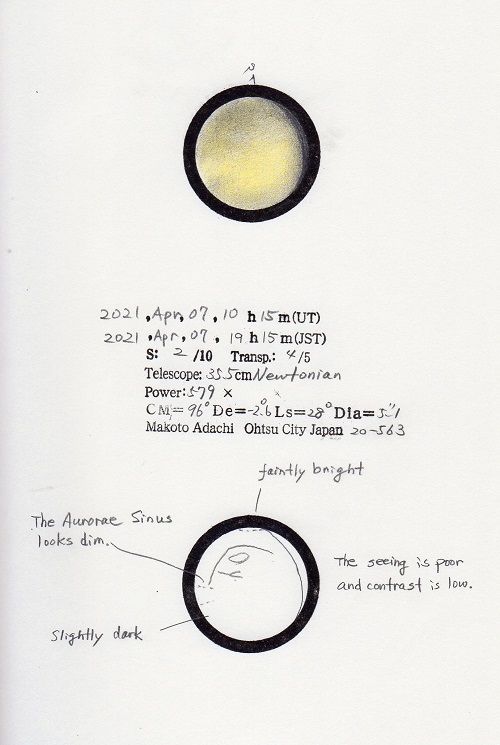 S
2021 , Apr, 07 , 10 h 15 m(UT)
2021 , Apr, 07 , 19 h 15 m(JST)
S: 2 /10 Transp.: 4/5
Telescope: 355cm Newtonian
Power: 579 ×
CM= 96° De= -2.6 Ls= 28° Dia= 5."1
Makoto Adachi Ohtsu City Japan 20-563
faintly bright
The Aurorae Sinus
looks dim.
The seeing is poor
and contrast is low.
Slightly dark